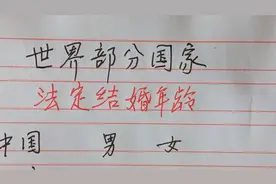 世界部分国家
法定结婚年龄
中国 男 女